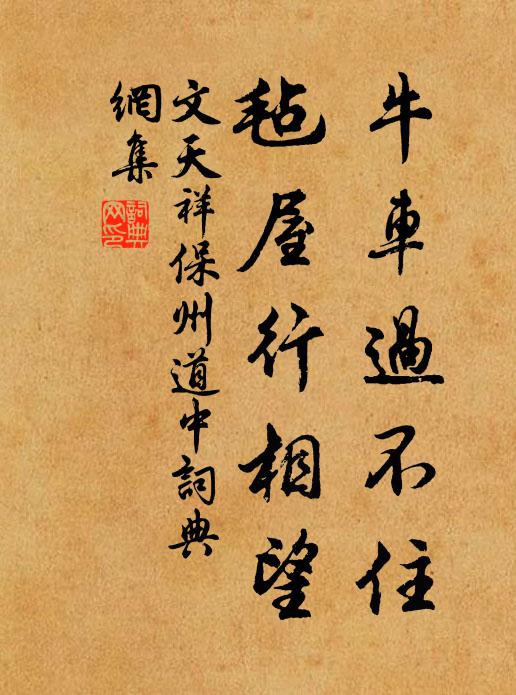 牛車過不住
氈屋行相望
文天祥保州道中詞典
網集
詞典
网印